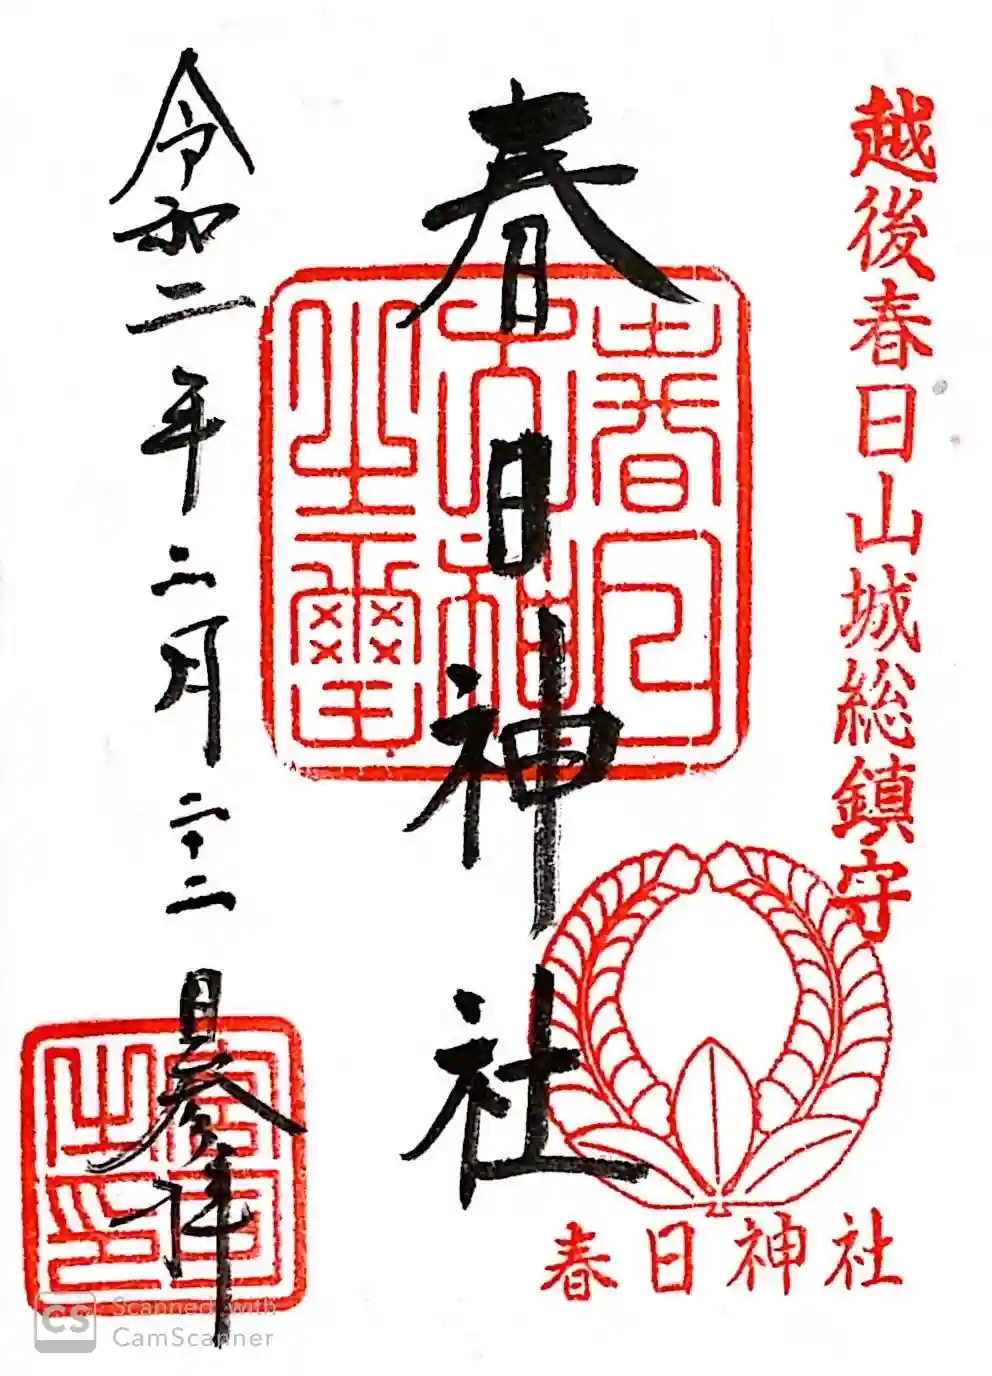 越後春日山城総鎮守
春日神社
春日神社
春日大神之璽
令和二年二月二十二日参拝
宮司之印
CS Scanned with
CamScanner